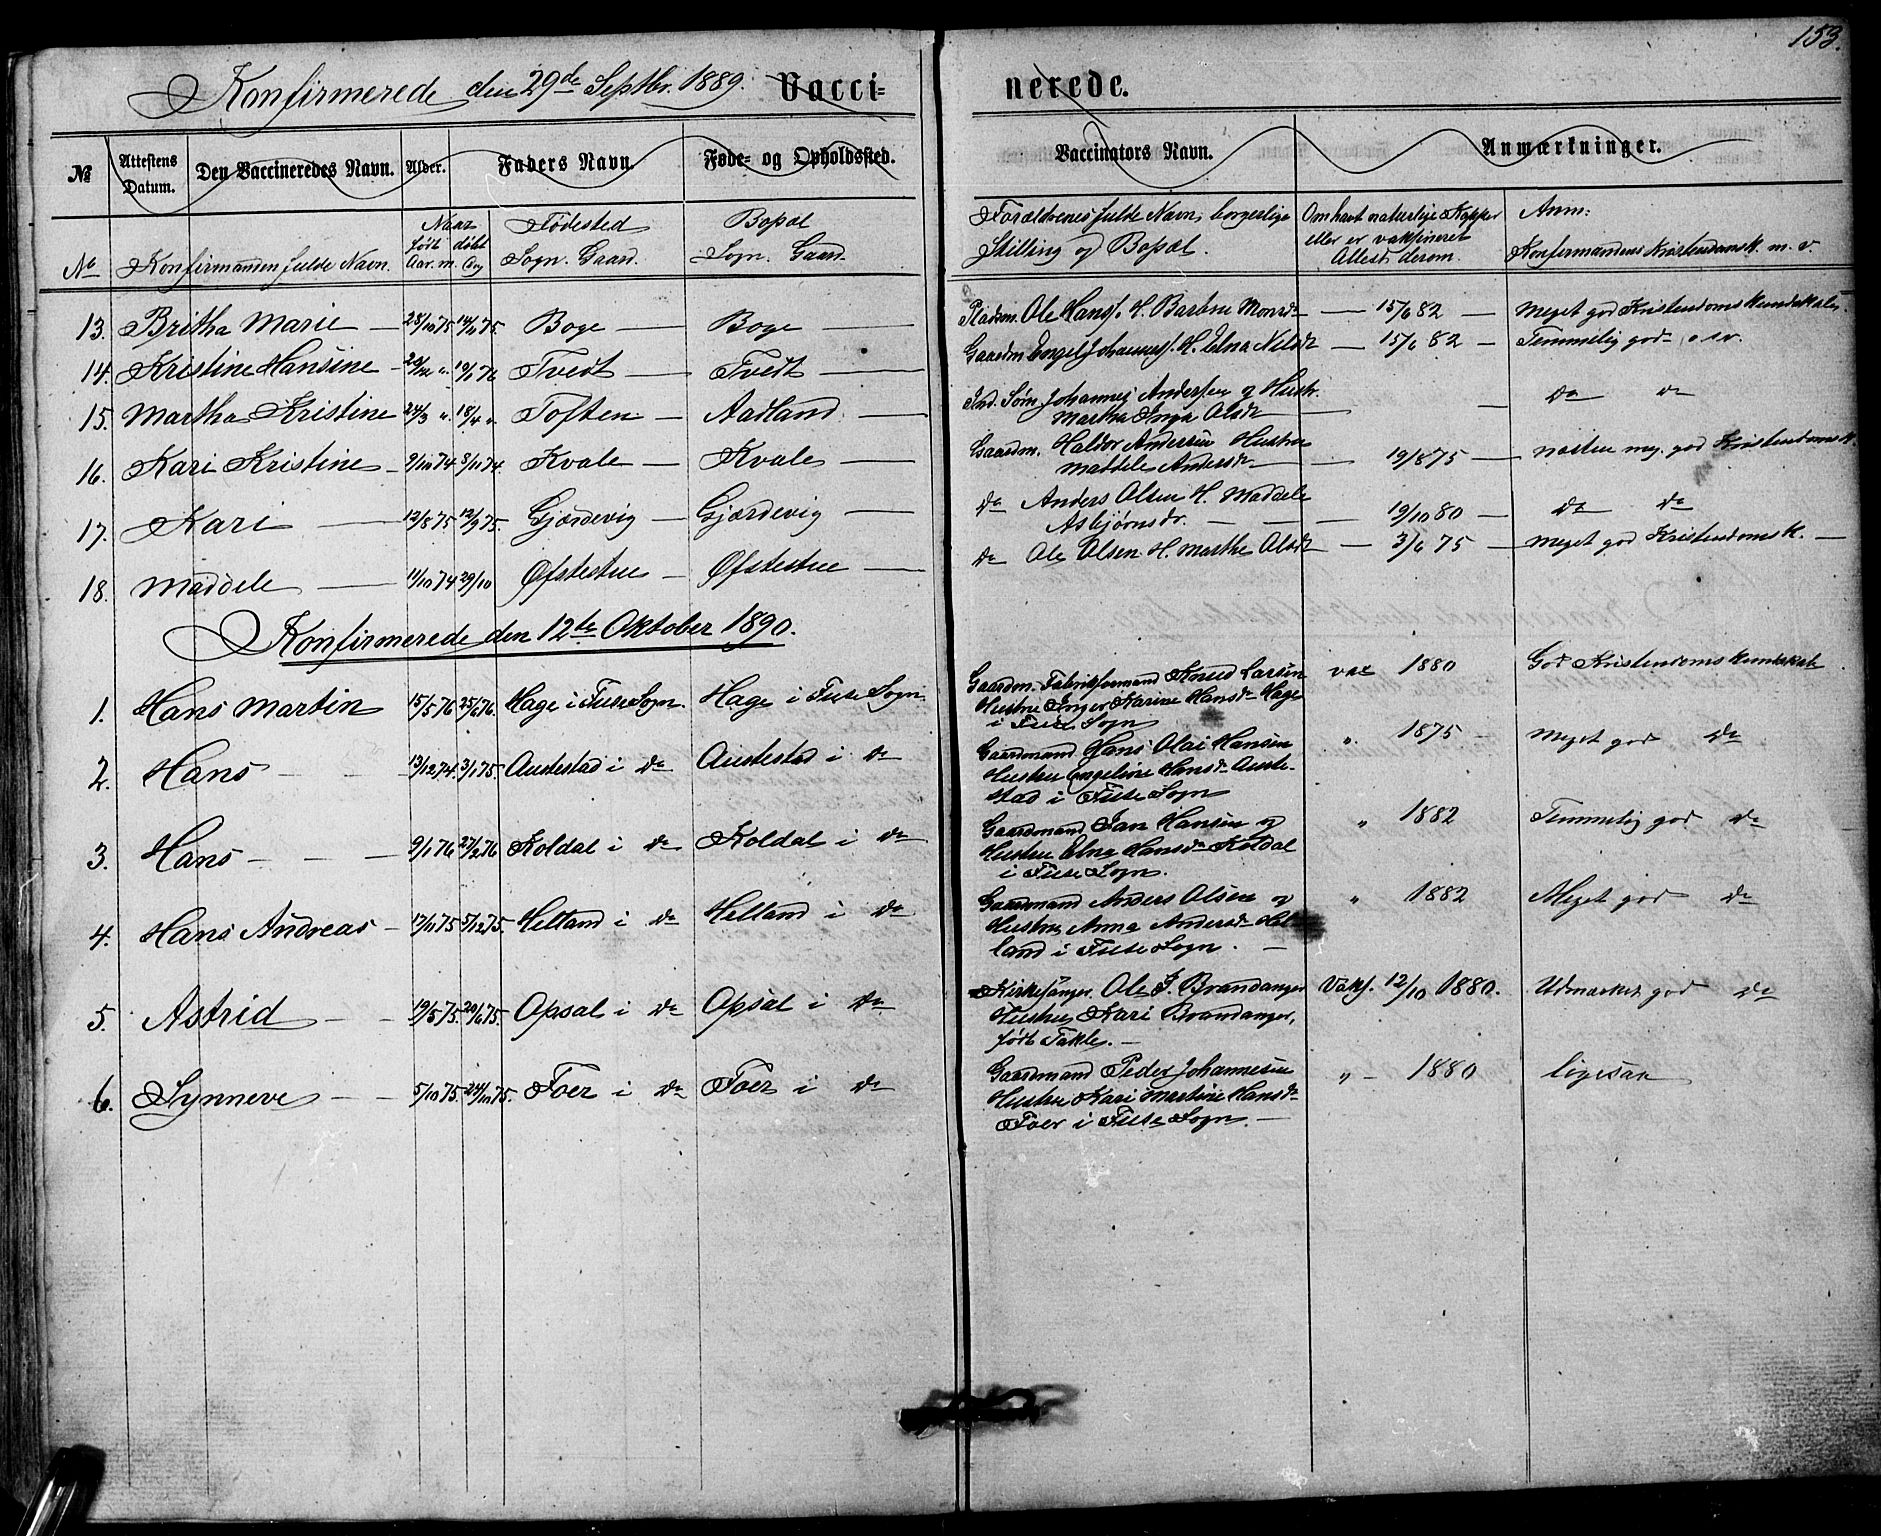 153.
Konfirmerede den 29de Septbr. 1889. Vacci-
nerede.
№ Attestens Datum. Den Vaccineredes Navn. Alder. Faders Navn. Føde- og Opholdssted. Vaccinators Navn. Anmærkninger.
Naar Fødested Bopæl Forældrenes fulde Navn, borgerlige Om havt naturlige Kopper Anm:
født døbt eller er vaksineret
No Konfirmanden fulde Navn. Aar. m. Sogn. Gaard. Sogn. Gaard. Stilling og Bopæl. Attest derom. Konfirmandens Kristendomsk. m. v.
13. Britha Marie 25/10 75 14/11 75. Boge Boge Pladsm. Ole Hanss. H. Barbru Monsdr 15/6 82 Meget god Kristendomskundskab
14. Kristine Hansine 19/1 76 Tvedt Tvedt Gaardm Engel Johanness. H. Elna Nilsdr 15/6 82 Temmelig god
15. Martha Kristine 24/3 " 18/4 ". Toften Aadland Ind. Søm. Johannes Andersen og Hustr.
Martha Inga Olsdr do do
16. Kari Kristine 9/10 74 8/11 74. Kvale Kvale Gaardm. Haldor Andersen Hustru
Maddele Andersdr 19/8 75 næsten meg. god Kristendomsk.
17. Kari 12/8 75 12/9 75. Gjærdevig Gjærdevig do Anders Olsen H. Maddele
Asbjørnsdr. 19/10 80 do do
18. Maddele 11/10 74 29/10 Øfstestue Øfstestue do Ole Olsen H. Marthe Olsdr 3/6 75 Meget god Kristendomsk.
Konfirmerede den 12te Oktober 1890.
1. Hans Martin 15/5 76 25/6 76. Hage i Fuse Sogn. Hage i Fuse Sogn Gaardm. Fabrikformand Knud Larsen vax 1880 God Kristendomskundskab
Hustru Inger Karine Hansdr Hage
i Fuse Sogn
2. Hans 13/12 74 3/1 75. Austestad i do Austestad i do Gaardmand Hans Olai Hansen " 1875 Meget god do
Hustru Engeline Hansdr Auste-
stad i Fuse Sogn
3. Hans 9/1 76 27/2 76 Koldal i do Koldal i do Gaardmand Jan Hansen og " 1882 Temmelig god do
Hustru Elna Hansdr Koldal
i Fuse Sogn.
4. Hans Andreas 17/11 75 5/12 75. Helland i do Helland i do Gaardmand Anders Olsen og " 1882 Meget god do
Hustru Anna Andersdr Hel
land i Fuse Sogn.
5. Astrid 19/5 75. 20/6 75. Opsal i do Opsal i do Kirkesanger Ole J. Brandanger Vaks. 12/10 1880. Udmærket god do
Hustru Kari Brandanger,
født Takle.
6. Synneve 5/10 75. 24/10 75. Foer i do Foer i do Gaardmand Peder Johannesen " 1880 ligesaa
Hustru Kari Martine Hansdr
Foer i Fuse Sogn.